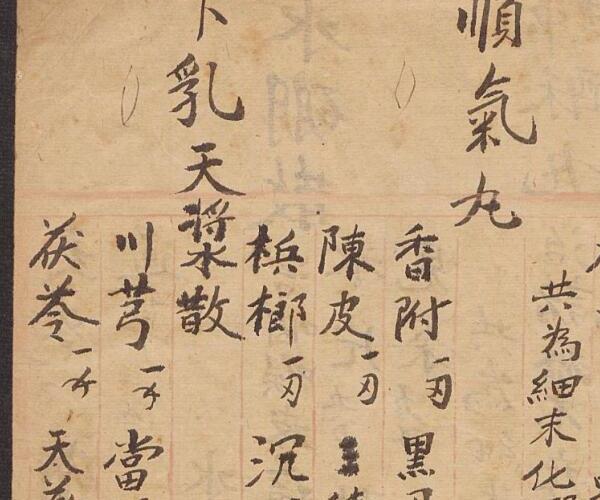 共為細末化
順氣丸
香附一刃 黑
陳皮一刃
梹榔一刃 沉
乳天漿散
川芎一 當
茯苓一 天